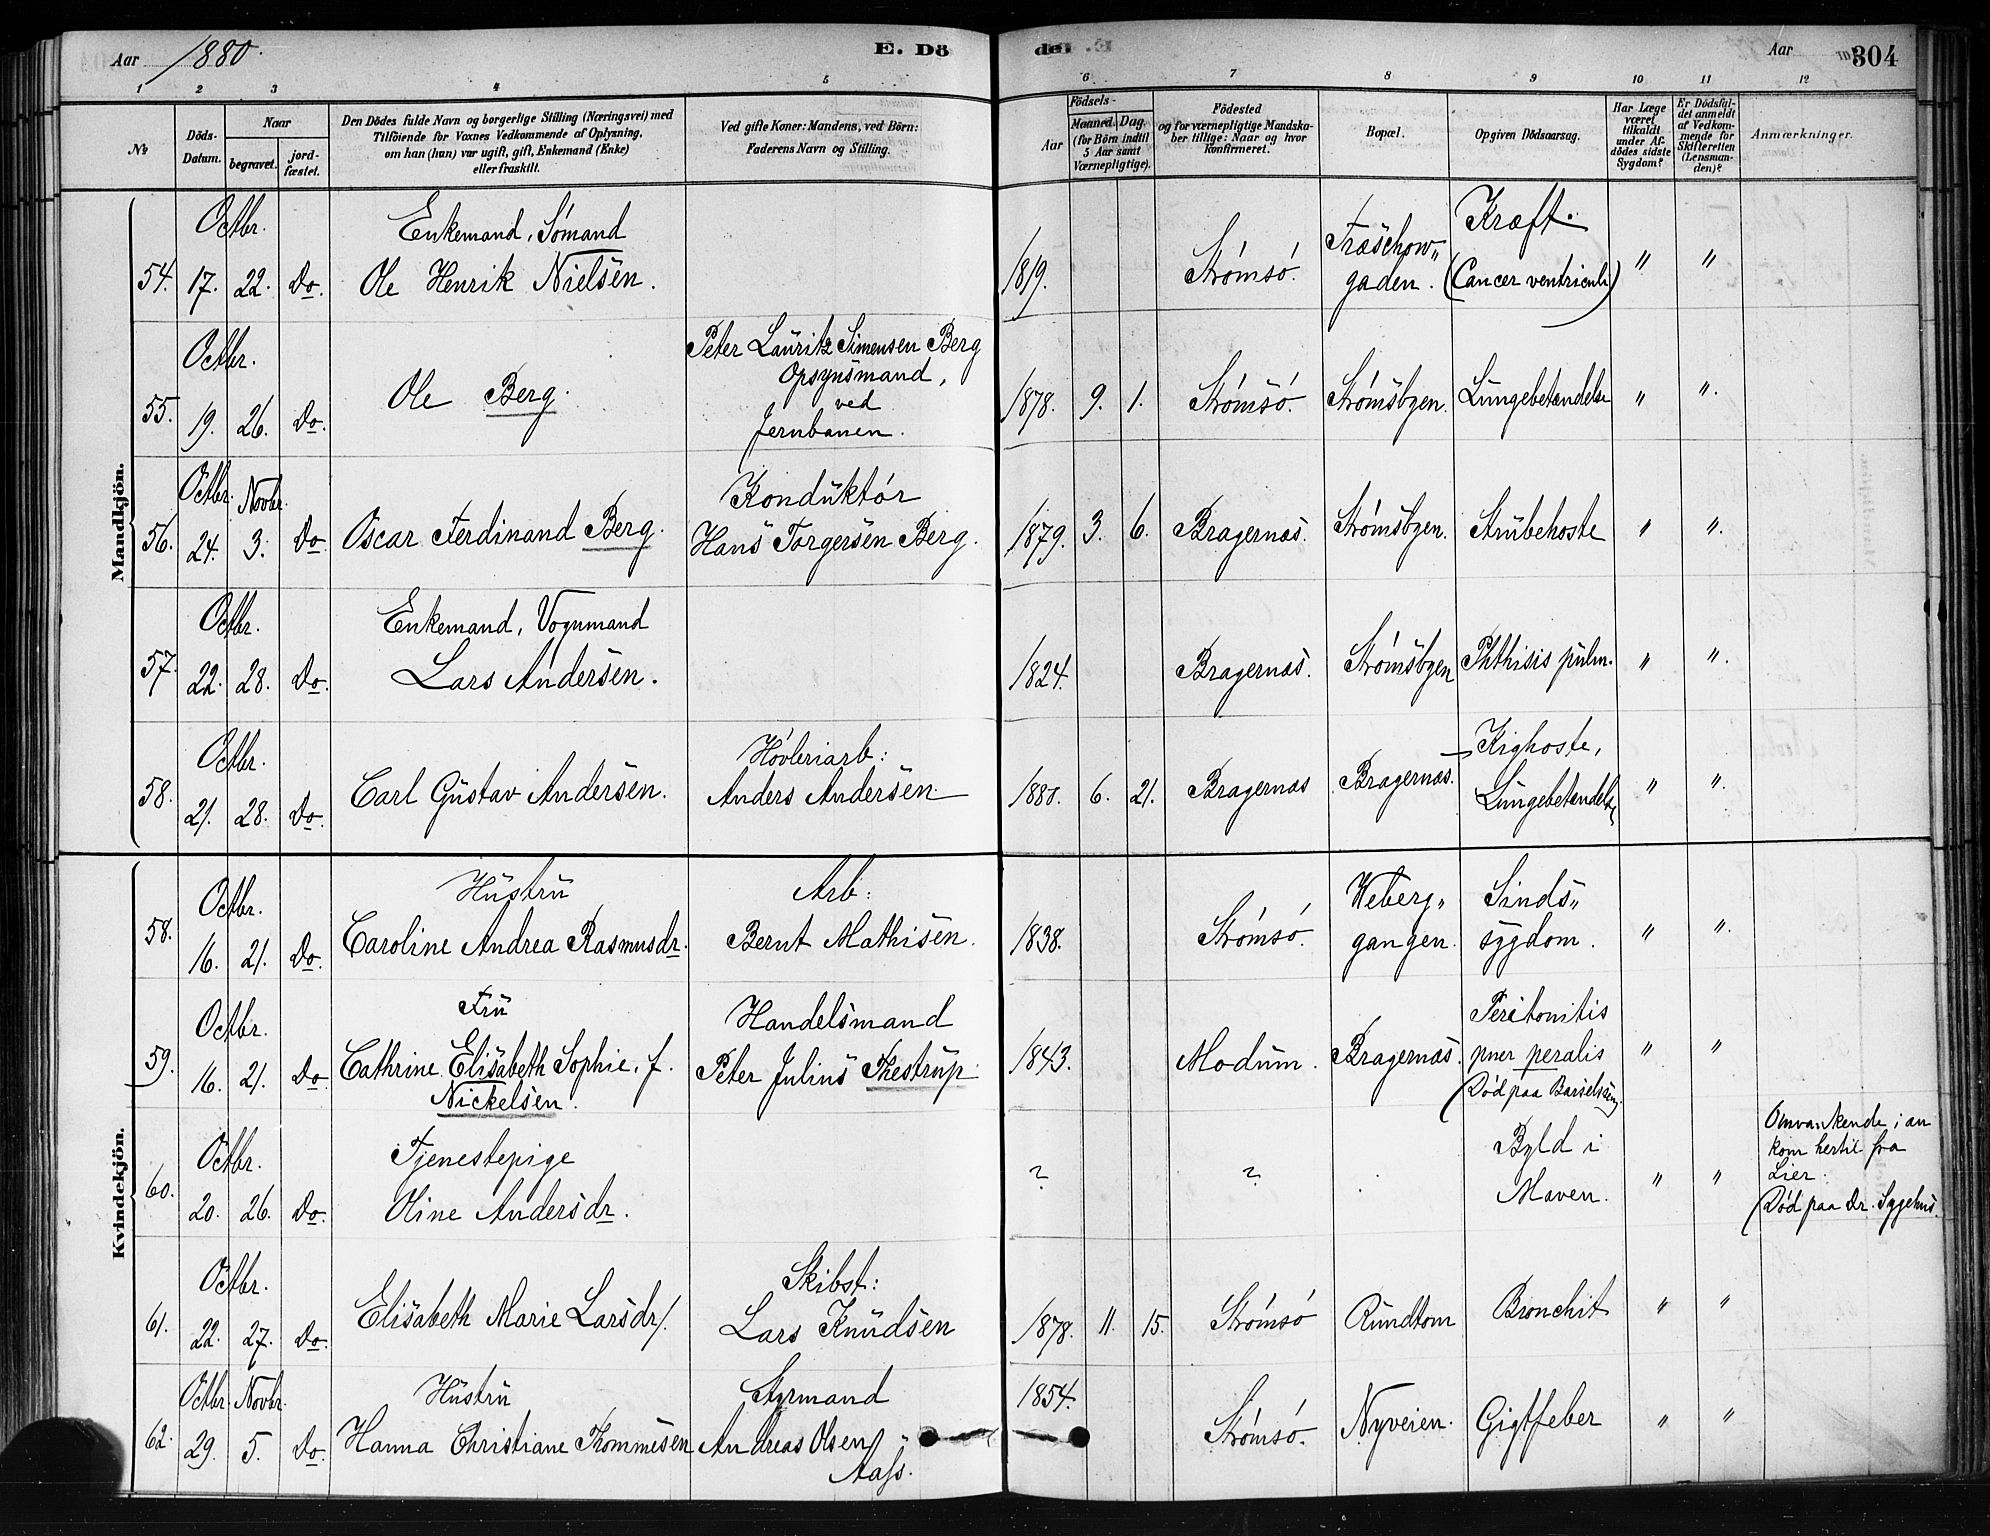 Aar 1880.
E. Dö
de.
Aar
304
1 2 3 4 5 6 7 8 9 10 11 12
№
Döds-
Datum.
Naar
begravet.
jord-
fæstet.
Den Dödes fulde Navn og borgerlige Stilling (Næringsvei) med
Tilföiende for Voxnes Vedkommende af Oplysning,
om han (hun) var ugift, gift, Enkemand (Enke)
eller fraskilt.
Ved gifte Koner: Mandens, ved Börn:
Faderens Navn og Stilling.
Födsels-
Aar
Maaned. Dag.
(for Börn indtil
5 Aar samt
Værnepligtige).
Födested
og for værnepligtige Mandska-
ber tillige: Naar og hvor
konfirmeret.
Bopæl.
Opgiven Dödsaarsag.
Har Læge
været
tilkaldt
under Af-
dödes sidste
Sygdom?
Er Dödsfal-
det anmeldt
af Vedkom-
mende for
Skifteretten
(Lensman-
den)?
Anmærkninger.
Mandkjön.
Octbr. Enkemand, Sømand Træschow" Kræft.
54. 17. 22. Do. Ole Henrik Nielsen. 1819. Strømsø. gaden. (Cancer ventriculi) " "
Octbr. Peter Lauritz Simensen Berg
Opsynsmand,
55. 19. 26. Do. Ole Berg. ved 1878. 9. 1. Strømsø. Strømsbgen. Lungebetændelse " ".
Jernbanen.
Octbr. Novbr. Konduktør
56. 24. 3. Do. Oscar Ferdinand Berg. Hans Torgersen Berg. 1879. 3. 6. Bragernæs. Strømsbgen. Strubehoste " ".
Octbr. Enkemand, Vognmand
57. 22. 28. Do. Lars Andersen. 1824. Bragernæs. Strømsbgen Phthisis pulm. " ".
Octbr. Høvleriarb: Kighoste,
58. 21. 28. Do. Carl Gustav Andersen. Anders Andersen 1880. 6. 21. Bragernæs Bragernæs. Lungebetændelse " ".
Kvindekjön.
Octbr. Hustru Arb: Weberg" Sinds"
58. 16. 21. Do. Caroline Andrea Rasmusdr. Bernt Mathisen. 1838. Strømsø. gangen. sygdom. " ".
Octbr. Fru Handelsmand Peritonitis
59. 16. 21. Do Cathrine Elisabeth Sophie, f. Peter Julius Thestrup 1843. Modum. Bragernæs. puerperalis " "
Nickelsen. (Død paa Barselseng
Octbr. Tjenestepige Byld i
60. 20. 26. Do. Oline Andersdr. ? ? Maven. " "
Omvankende; an
kom hertil fra
Lier.
(Død paa Dr. Sygehus.
Octbr. Skibst:
61. 22. 27. Do. Elisabeth Marie Larsdr. Lars Knudsen 1878. 11. 15. Strømsø Rundtom Bronchit " "
Octbr. Novbr. Hustru Styrmand 1854.
62. 29. 5. Do. Hanna Christiane Thommesen Andreas Olsen Strømsø. Nyveien. Gigtfeber " "
Aass.